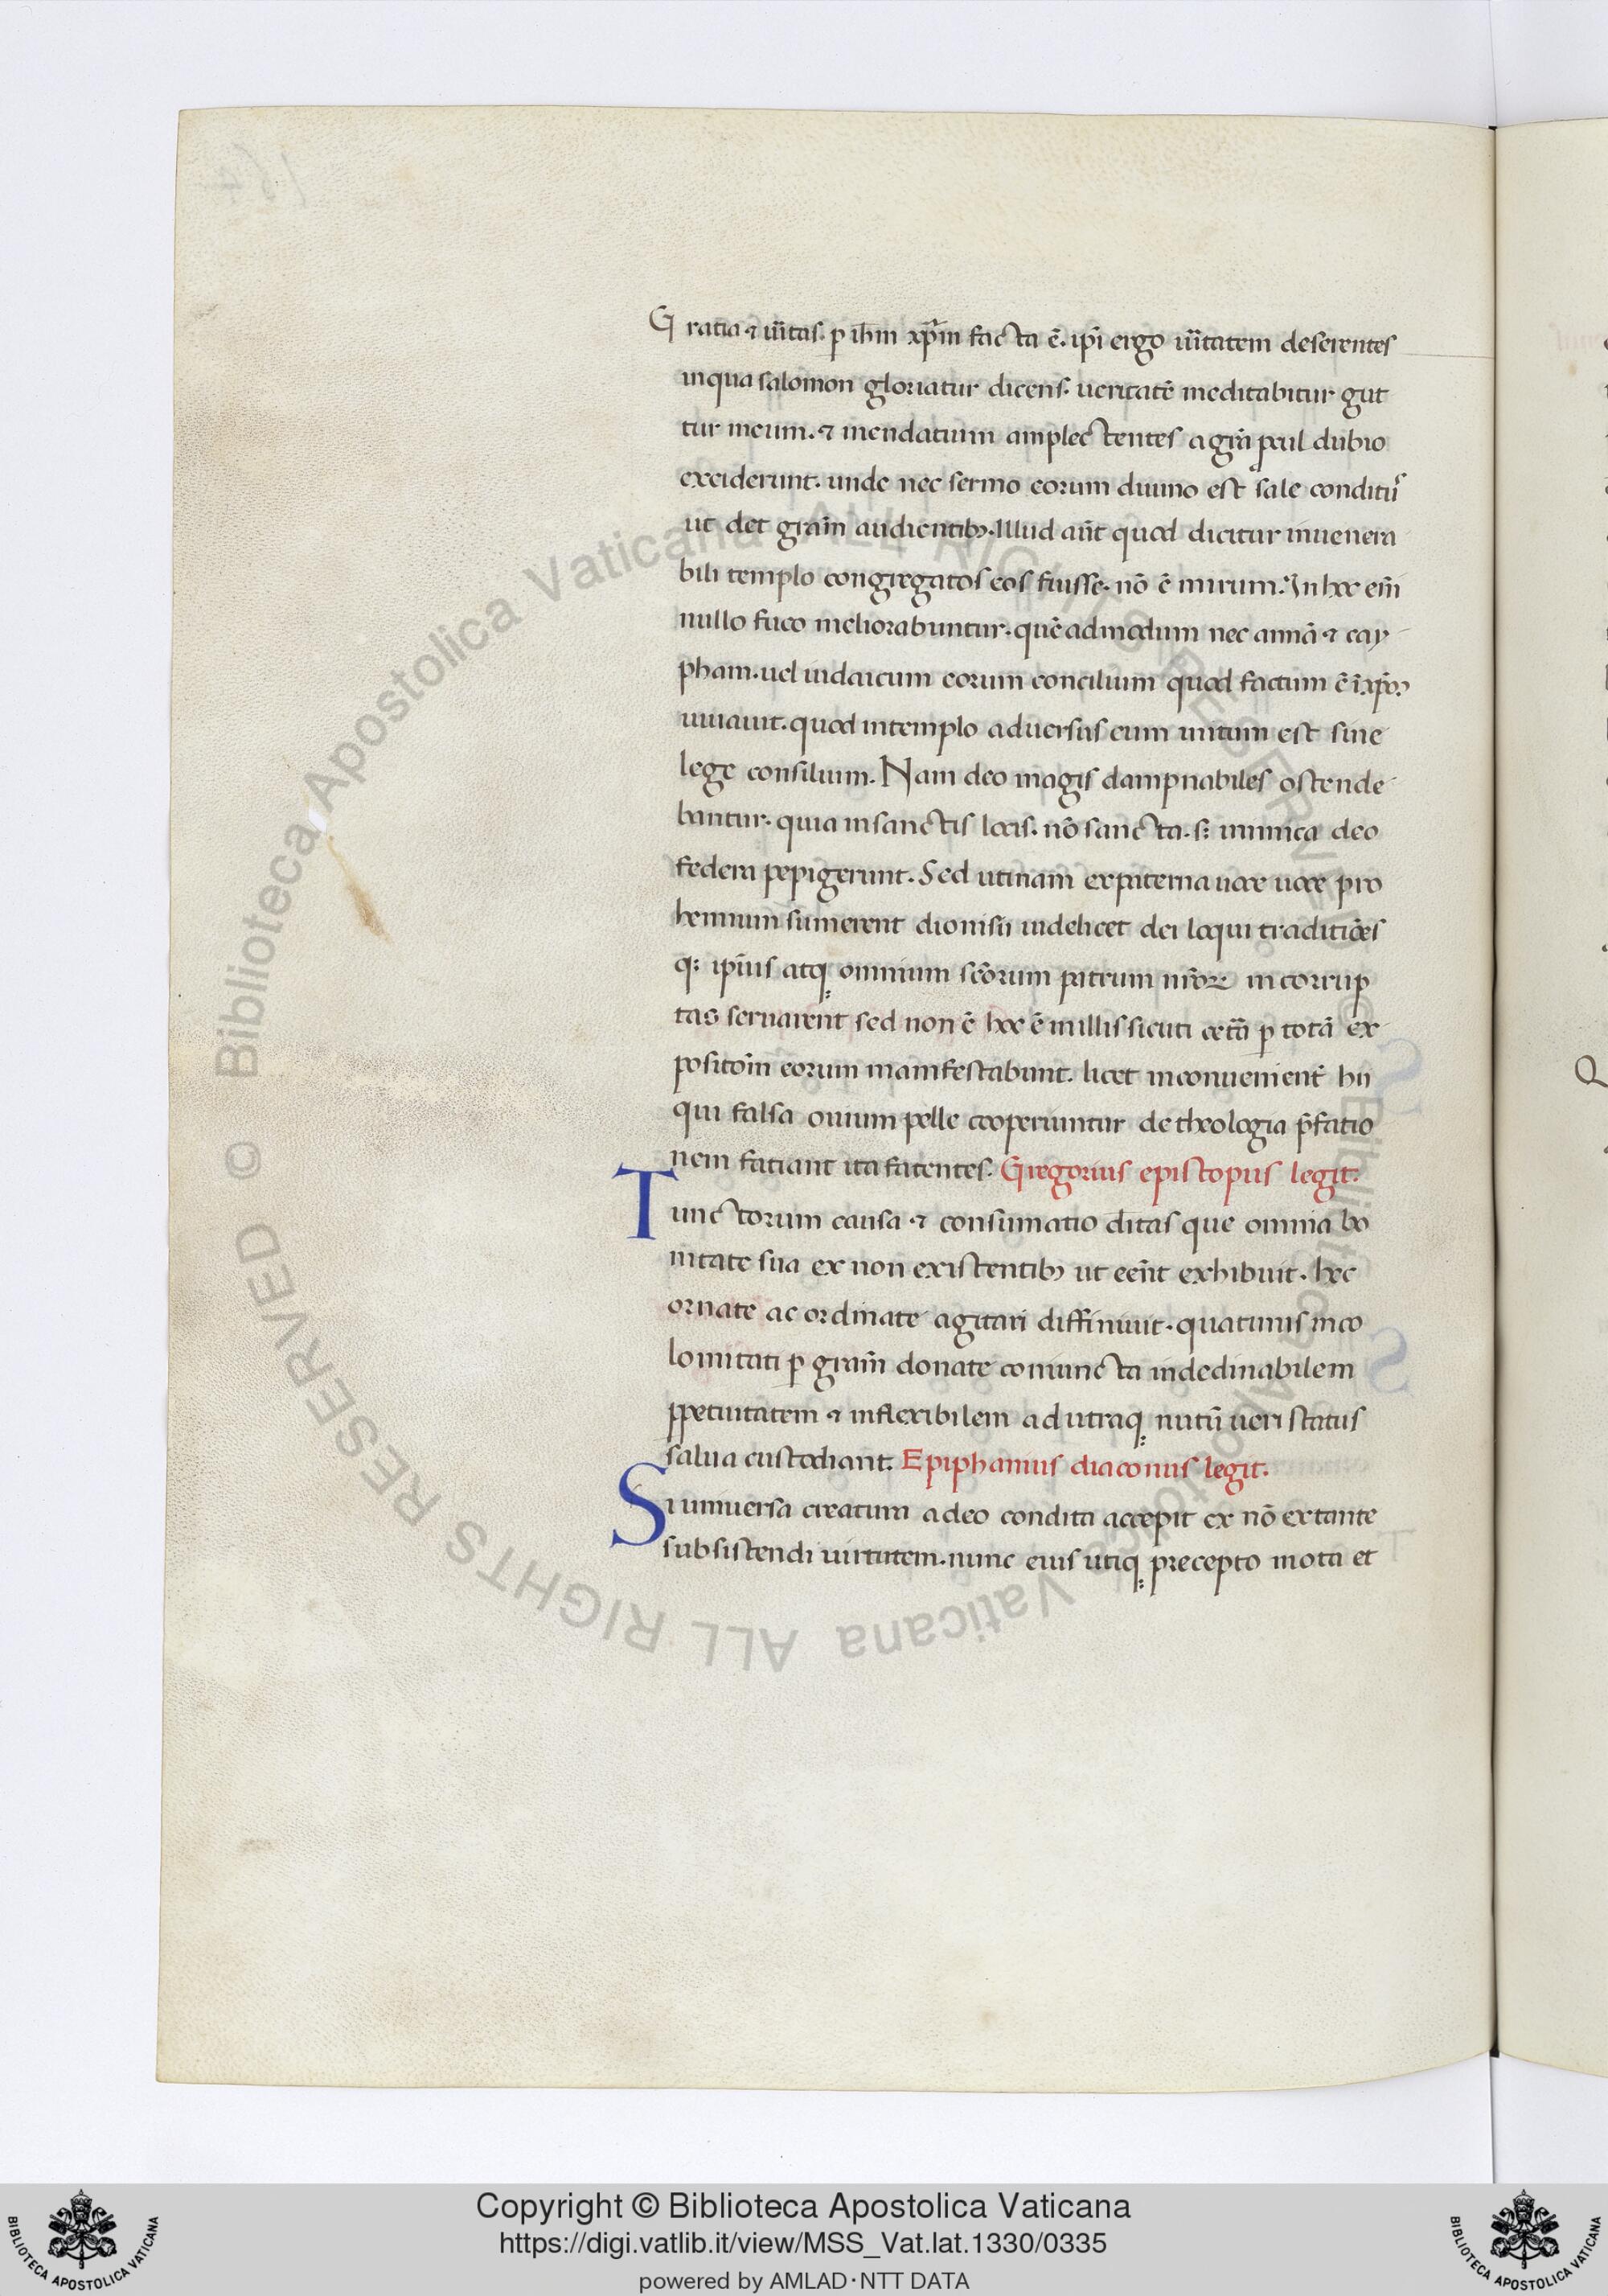 Gratia ⁊ uĩtas. ꝑ ihm̃ xp̃m facta ẽ. ip̃i ergo uĩtatem deserentes
inqua salomon gloriatur dicens. ueritatẽ meditabitur gut
tur meum. ⁊ mendatium amplectentes a gr̃a procul dubio
exciderunt. unde nec sermo eorum diuino est sale conditus
ut det grãm audientibꝫ. Illud aũt quod dicitur inuenera
bili templo congregatos eos fuisse. nõ ẽ mirum. In hoc em̃
nullo fuco meliorabuntur. quẽadmodum nec annã ⁊ cay
pham. uel iudaicum eorum concilium quod factum ẽ
iuuauit. quod intemplo aduersus eum initum est sine
lege consilium. Nam deo magis dampnabiles ostende
bantur. quia insanctis locis. nõ sancta. sꝫ inimica deo
federa pepigerunt. Sed utinam expaterna uoce uoce pro
hemium sumerent dionisii uidelicet dei loqui traditiões
qꝫ ip̃ius atqꝫ omnium sc̃orum patrum nr̃oꝝ incorrup
tas seruarent sed non ẽ hoc ẽ inillis sicuti cet̃a ꝑ totã ex
positoĩn eorum manifestabunt. licet inconuenient̃ hii
qui falsa ouium pelle cooperiuntur de theologia p̃fatio
nem fatiant ita fatentes. Gregorius episcopus legit.
Tunctorum causa ⁊ consumatio ditas que omnia bo
nitate sua ex non existentibꝫ ut eẽnt exhibuit. hec
ornate ac ordinate agitari diffiniuit. quatinus inco
lomitati ꝑ grãm donate coniuncta indeclinabilem
ꝑpetuitatem ⁊ inflexibilem ad utraqꝫ nutũ ueri status
salua custodiant. Epiphanius diaconus legit.
Si uniuersa creatura adeo condita accepit ex nõ extante
subsistendi uirtutem. nunc eius utiqꝫ precepto mota et
Copyright © Biblioteca Apostolica Vaticana
https://digi.vatlib.it/view/MSS_Vat.lat.1330/0335
powered by AMLAD·NTT DATA
BIBLIOTECA APOSTOLICA VATICANA
BIBLIOTECA APOSTOLICA VATICANA
© Biblioteca Apostolica Vaticana ALL RIGHTS RESERVED © Biblioteca Apostolica Vaticana ALL RIGHTS RESERVED